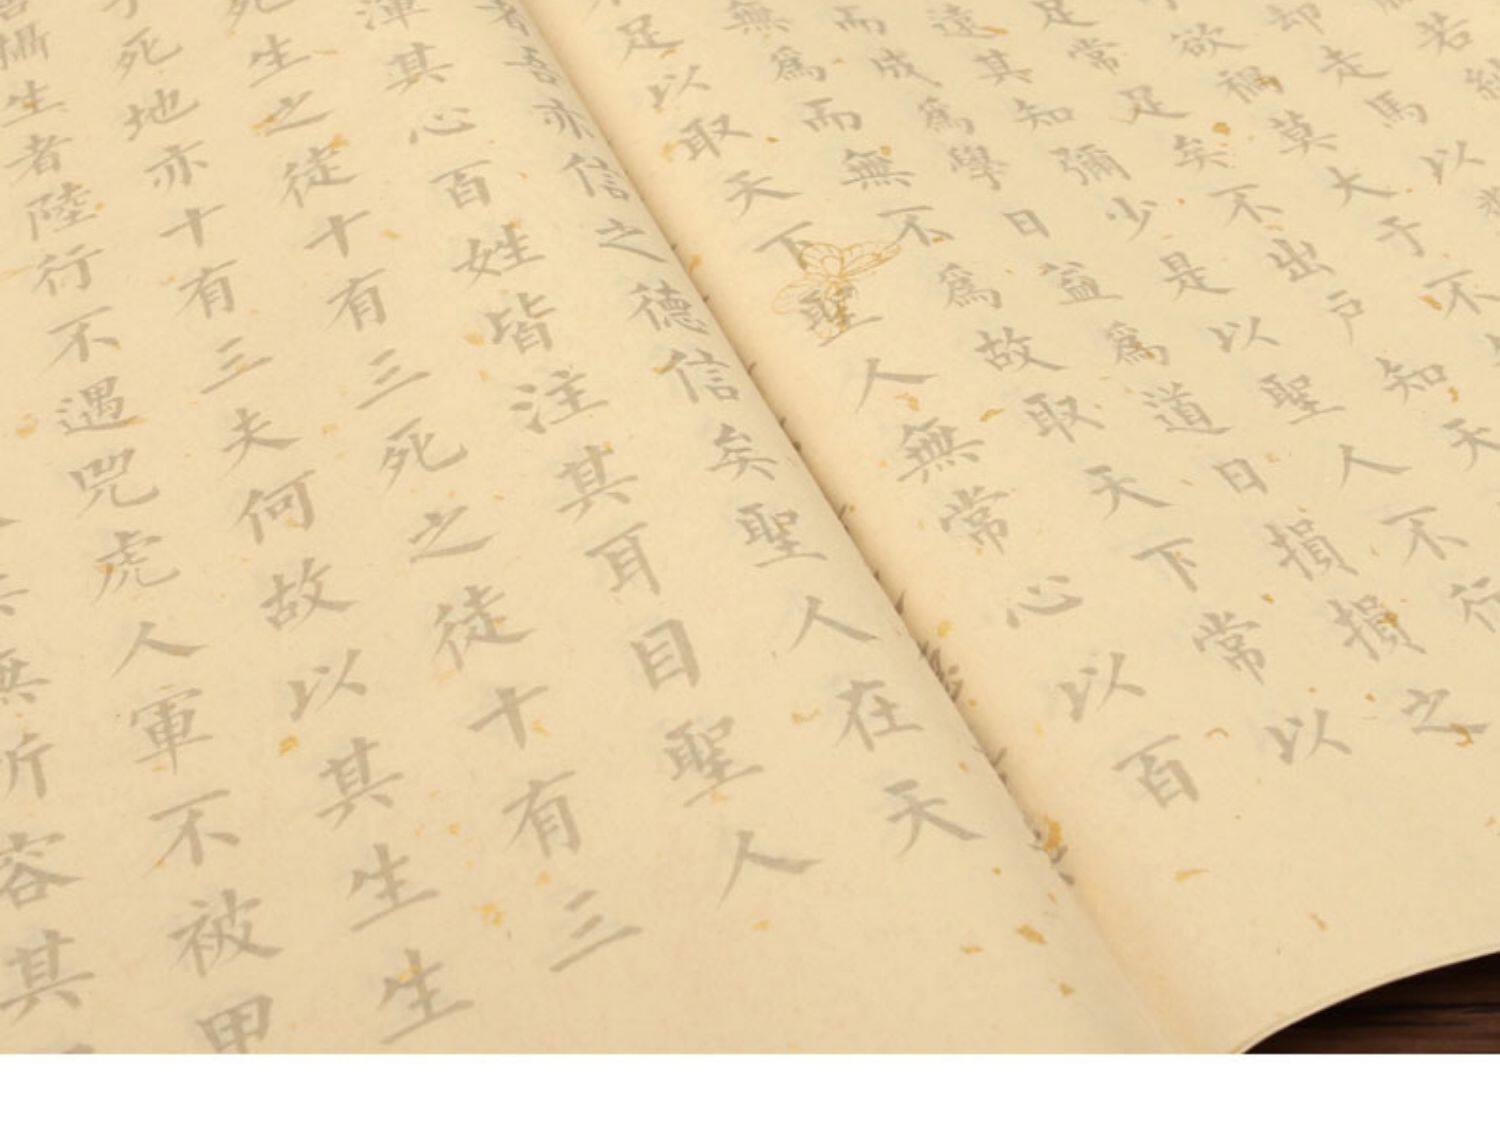 若
却走馬以
欲禍莫大于不
足常足矣不出戶知天
遠其知彌少是以聖人不行
而成爲學日益爲道日損損之
無爲而無不爲故取天下常以
足以取天下聖人無常心以百
者吾亦信之德信矣聖人在天
渾其心百姓皆注其耳目聖人
死生之徒十有三死之徒十有三
死地亦十有三夫何故以其生生
攝生者陸行不遇兕虎人軍不被甲
無所容其